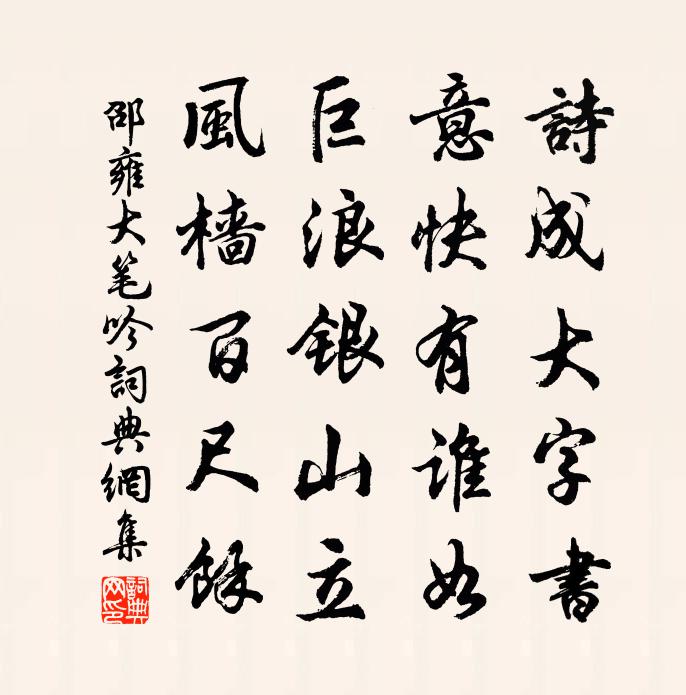 詩成大字書
意快有誰如
巨浪銀山立
風檣百尺餘
邵雍大笔吟詞典網集
詞典网印